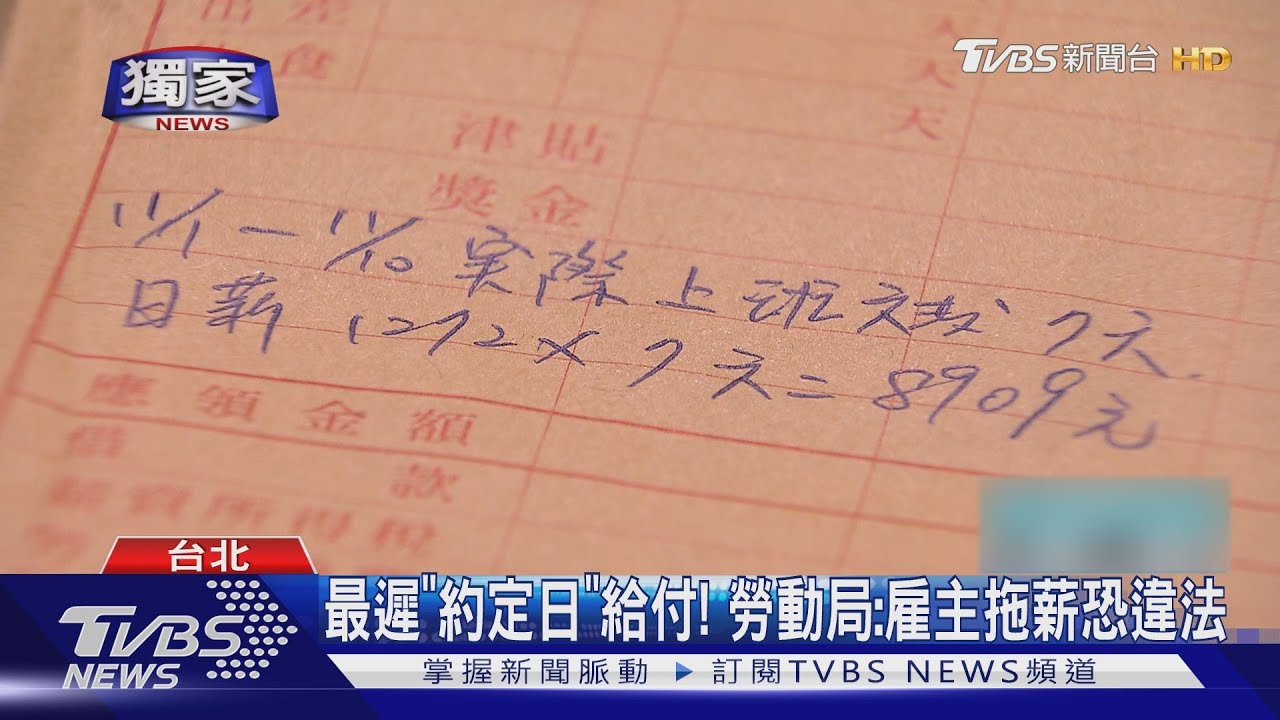 獨家
NEWS
TVBS新聞台 HD
天
天
津貼
獎金
11/1 — 11/10 実際上班天数 7天.
日薪 1272 × 7天 = 8909元
應領金額
借款
薪資所得稅
台北
最遲"約定日"給付! 勞動局:雇主拖薪恐違法
TVBS NEWS
掌握新聞脈動 ▶ 訂閱TVBS NEWS頻道